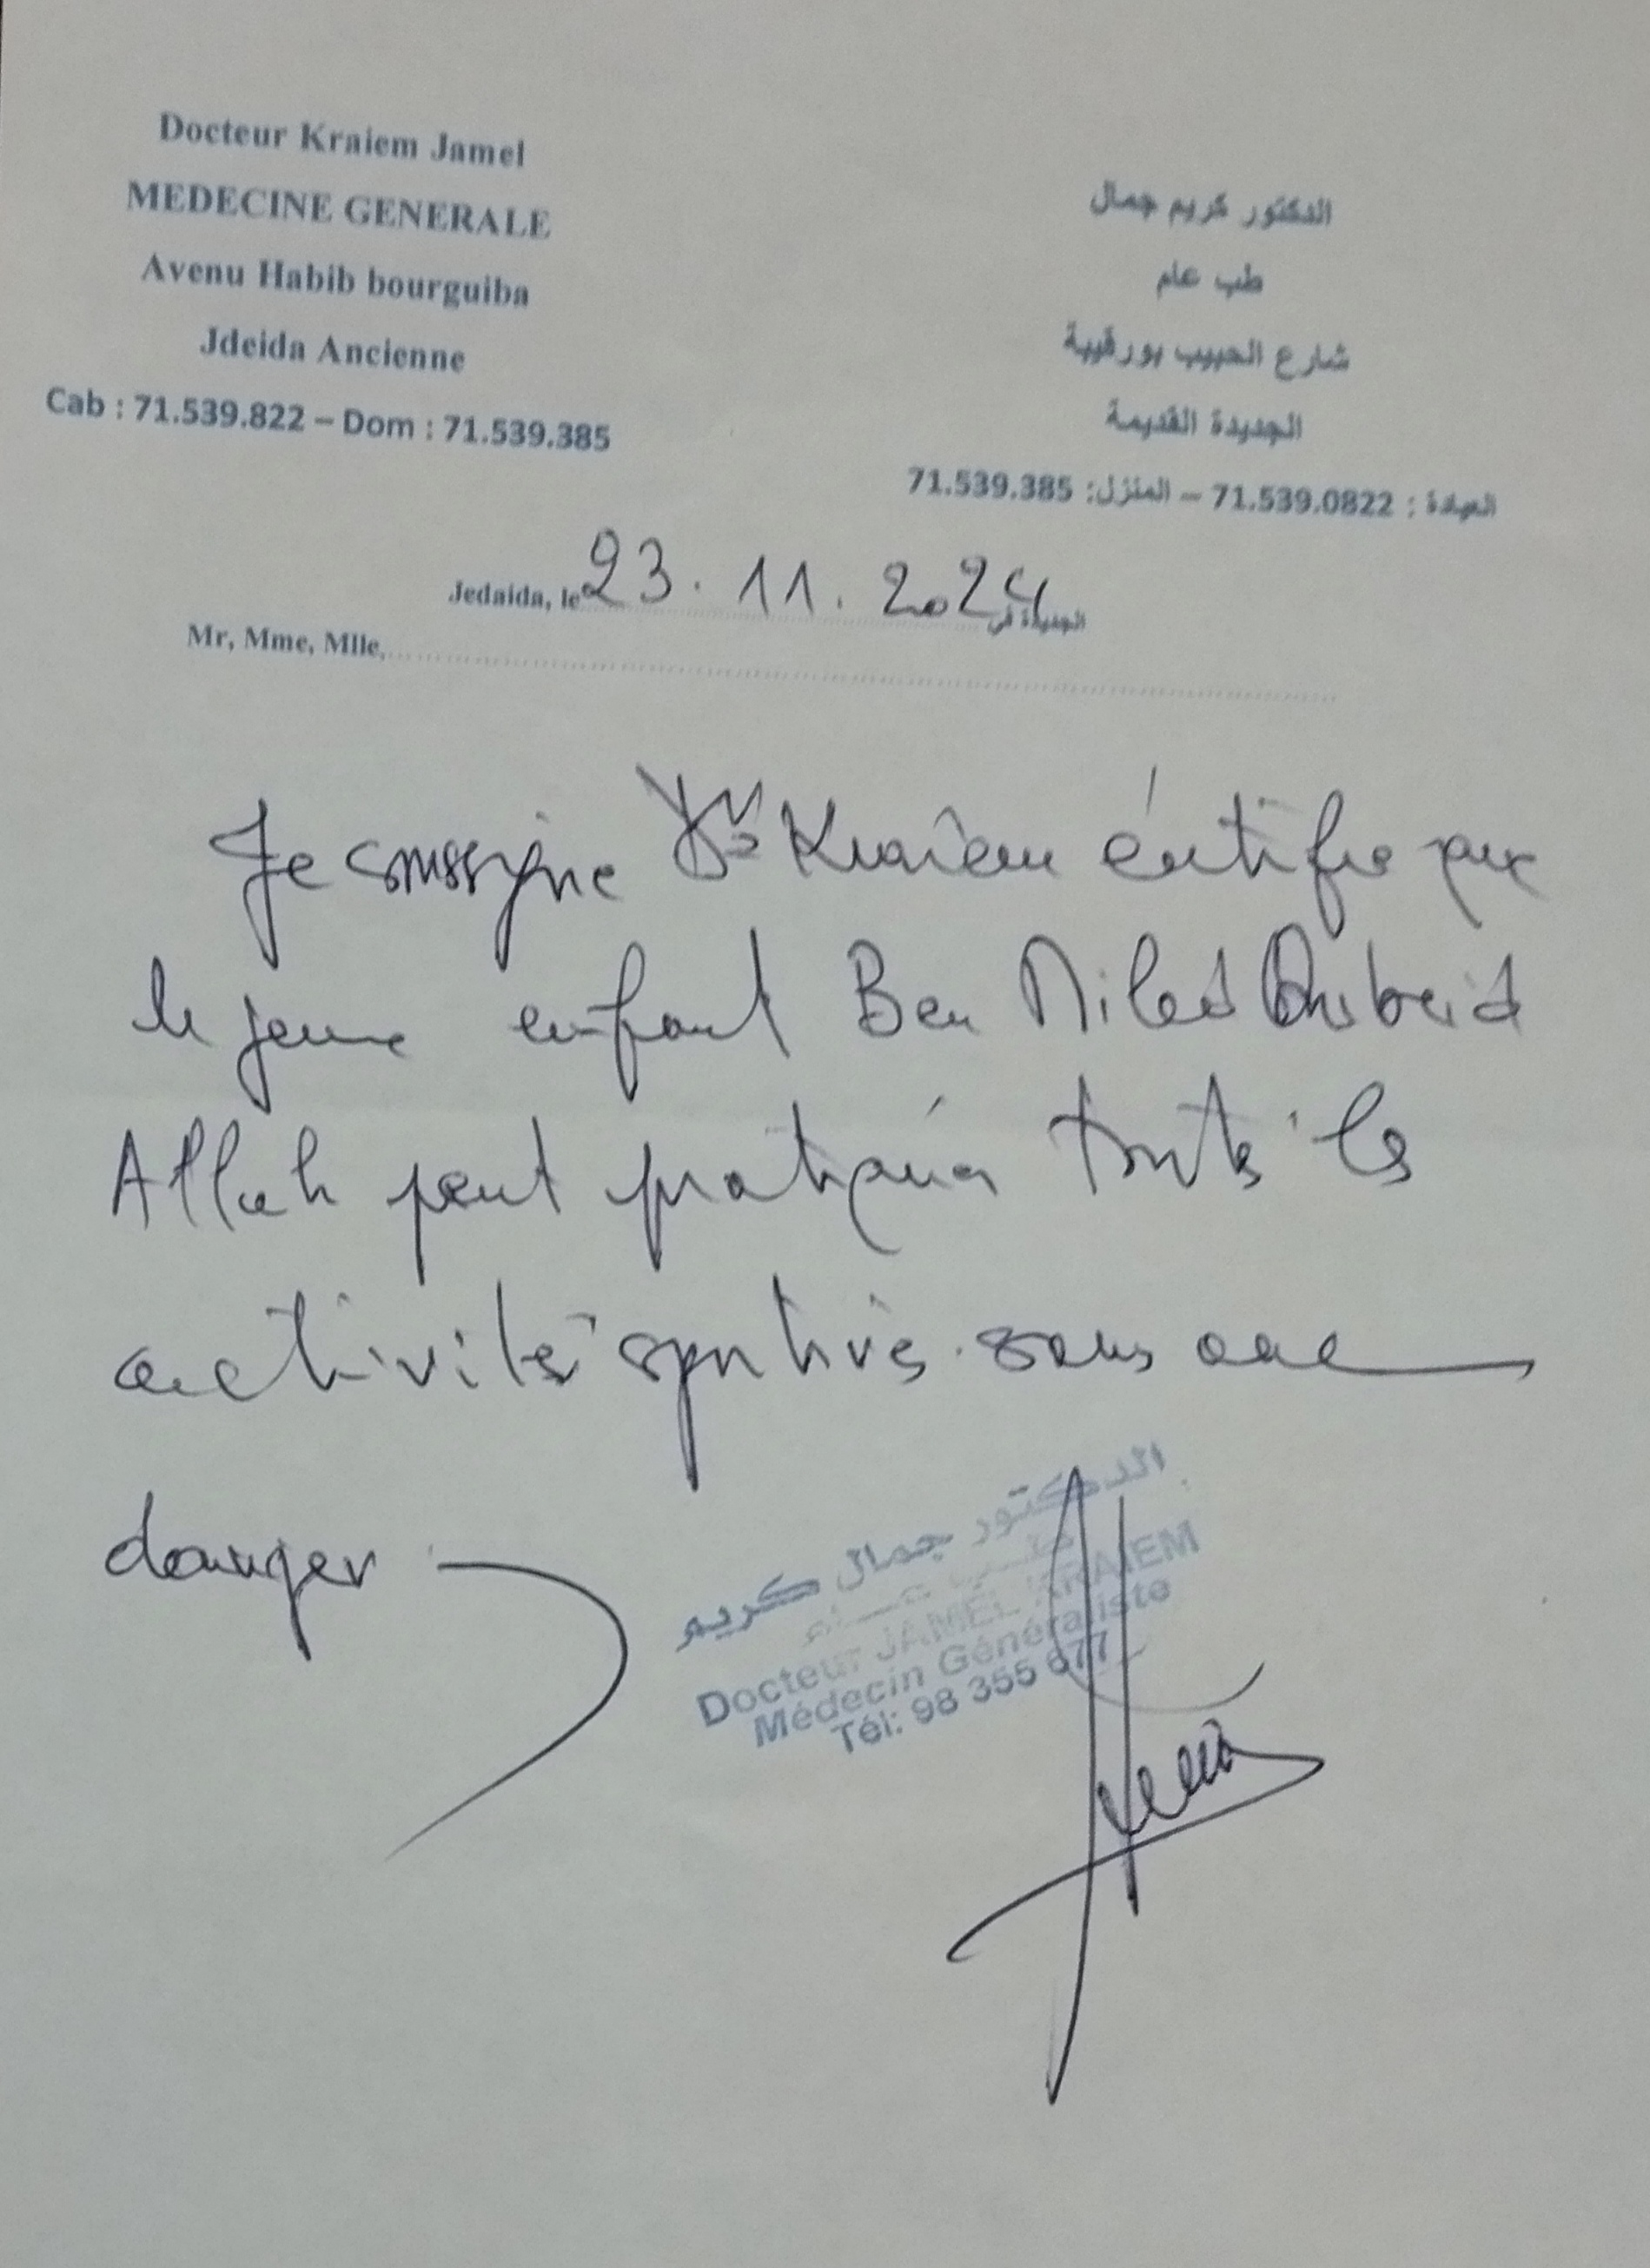 Docteur Kraiem Jamel
MEDECINE GENERALE
Avenu Habib bourguiba
Jdeida Ancienne
Cab : 71.539.822 – Dom : 71.539.385
الدكتور كريم جمال
طب عام
شارع الحبيب بورقيبة
الجديدة القديمة
العيادة : 71.539.0822 – المنزل: 71.539.385
Jedaida, le 23.11.2024 الجديدة في
Mr, Mme, Mlle,
Je soussigne Dr Kraiem certifie que
le jeune enfant Ben Miled Oubeid
Allah peut pratiquer toutes les
activités sportives sans
danger
الدكتور جمال كريم
طب عام
Docteur JAMEL KRAIEM
Médecin Généraliste
Tél: 98 355 677